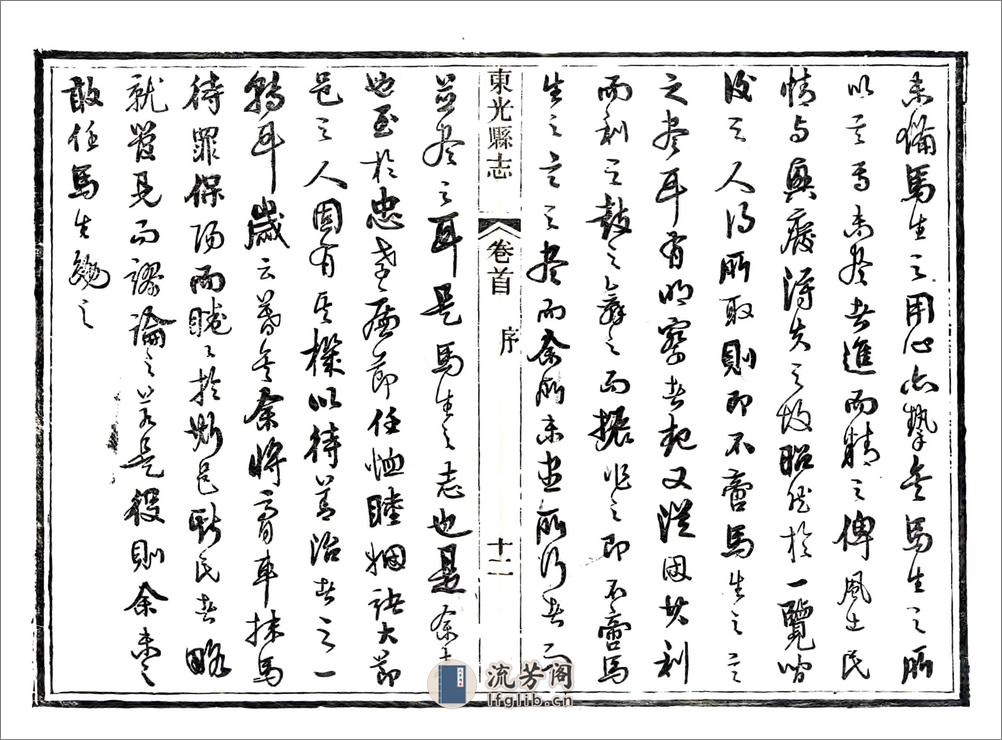 未備馬生之用心亦摯矣馬生之所
以言焉未盡者進而精之俾風土民
情与興廢得失之故昭然於一覽
後之人得所取則即不啻馬生之言
之盡耳有明察者起又從因其利
而利之鼓之舞之而振作之即不啻馬
生之言之盡而余所未盡所行者
盡之耳是馬生之志也是余
也至於忠孝廉節任恤睦婣諸大節
邑之人固有其機以待善治者之一
轉耳歲云暮矣余將膏車抹馬
待罪保陽而睠之於斯邑斯民者略
就管見而謬論之若是役則余未之
敢任馬生勉之
東光縣志 卷首 序 十二
流芳阁
lfglib.cn